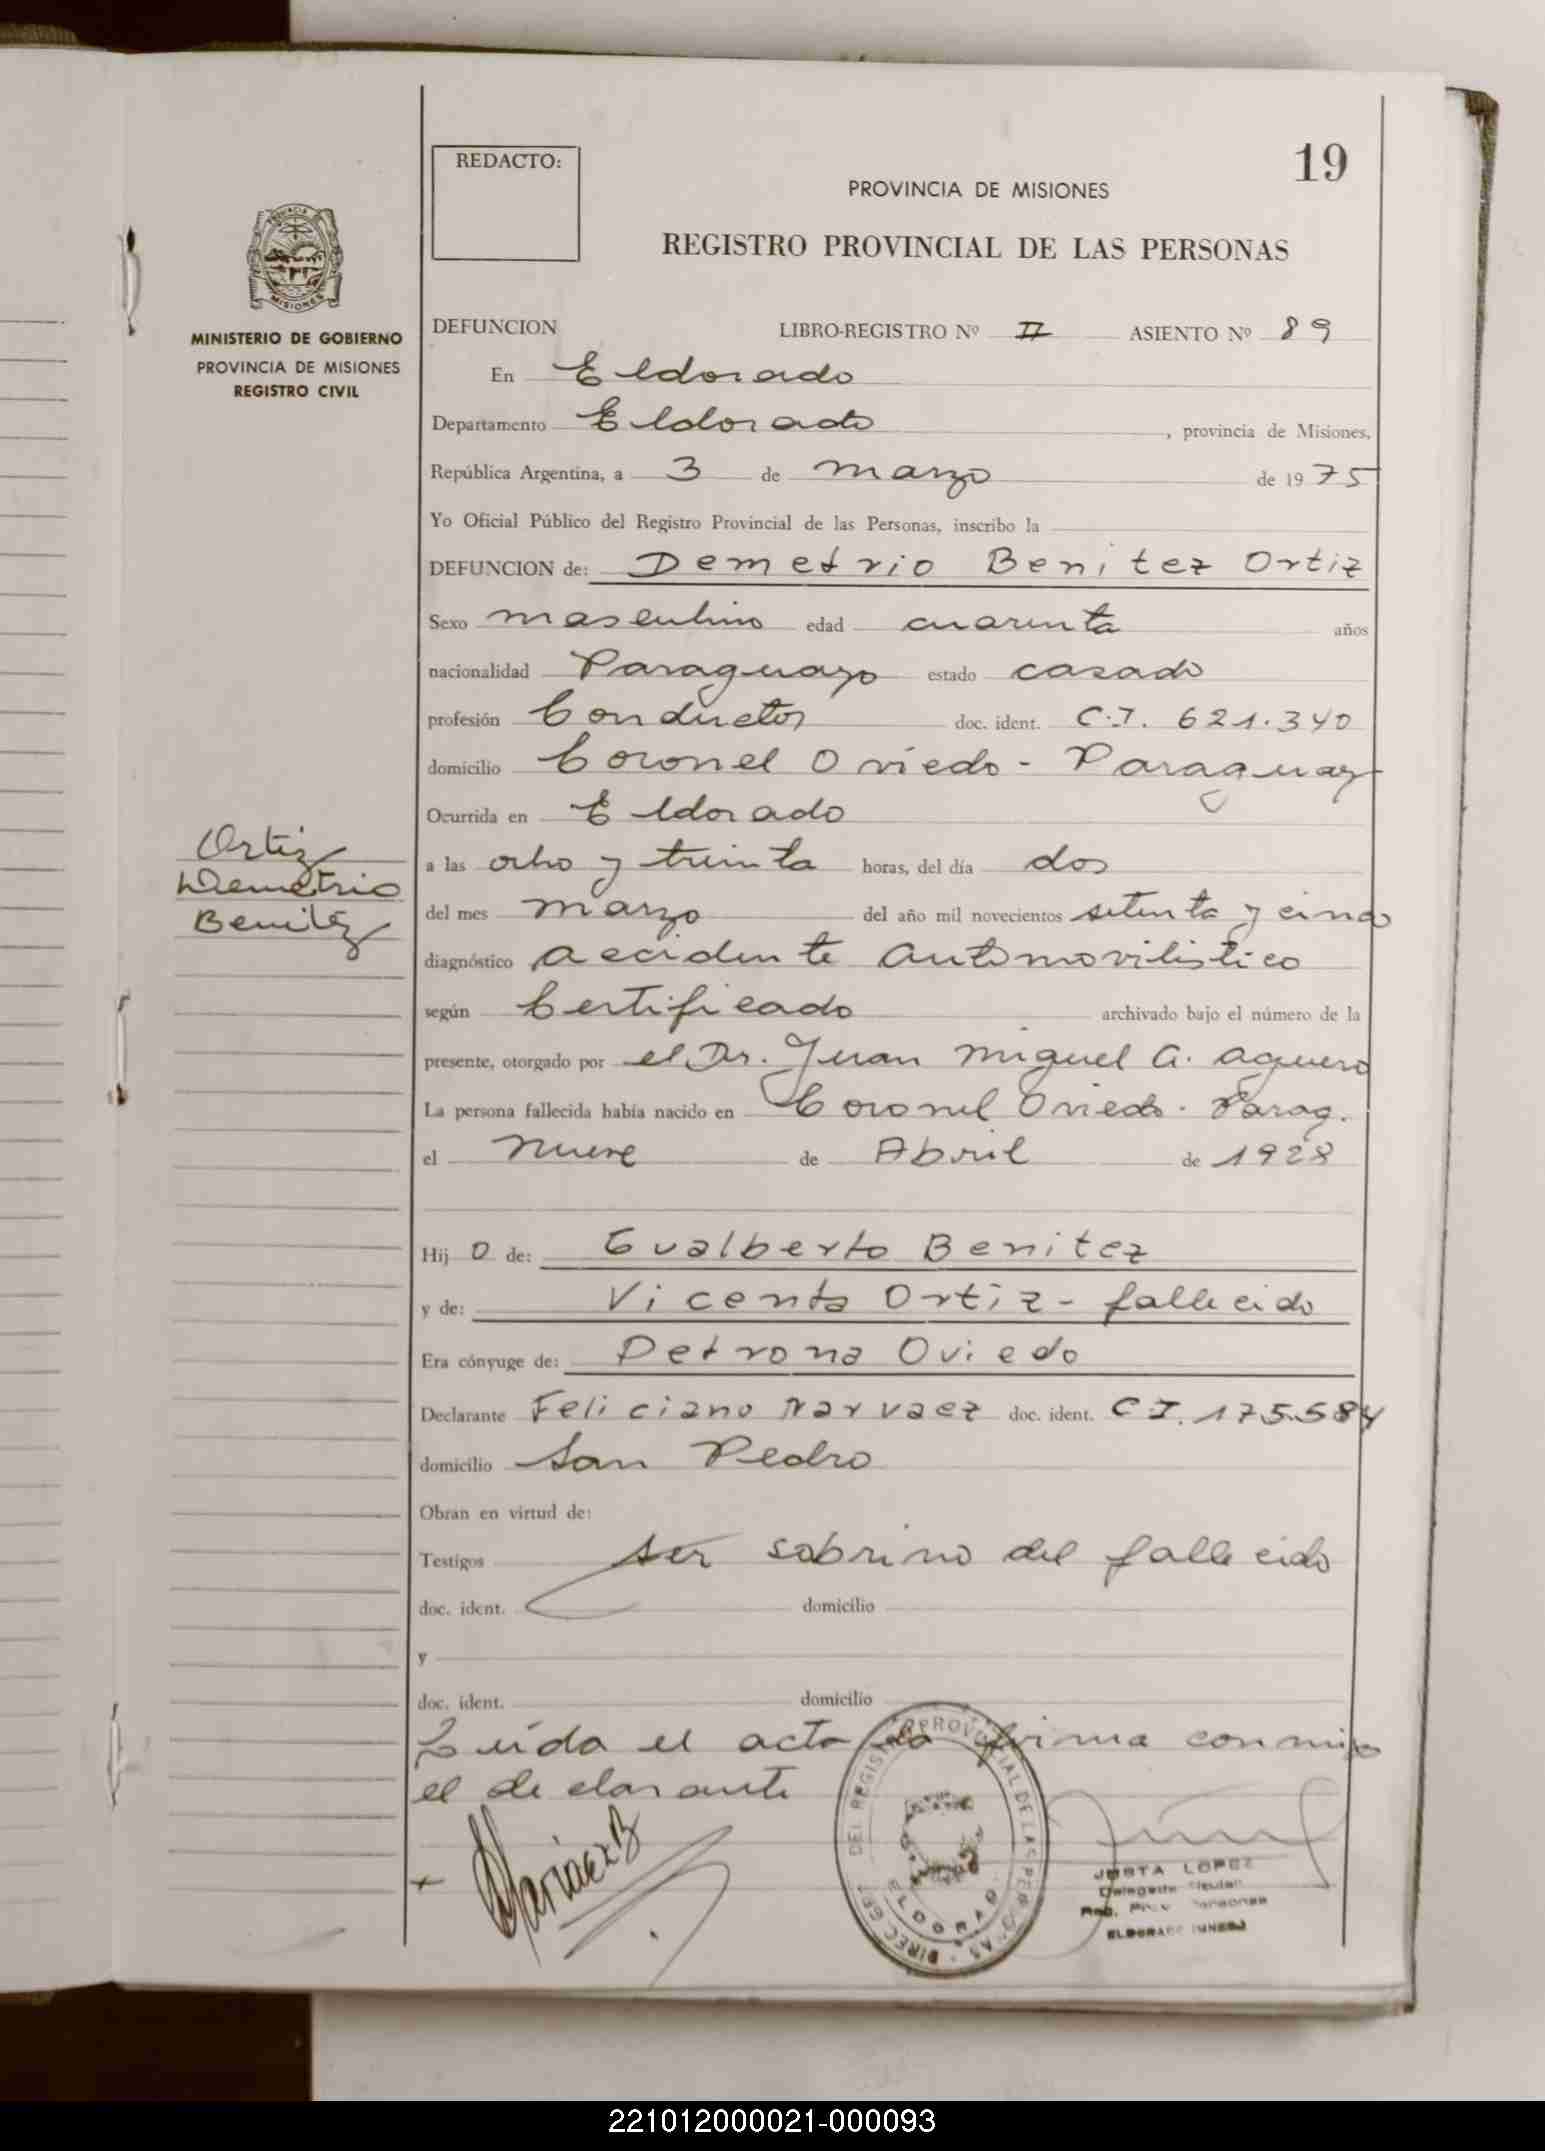 19
REDACTO:
PROVINCIA DE MISIONES
REGISTRO PROVINCIAL DE LAS PERSONAS
PROVINCIA
MISIONES
MINISTERIO DE GOBIERNO
PROVINCIA DE MISIONES
REGISTRO CIVIL
DEFUNCION LIBRO-REGISTRO Nº II ASIENTO Nº 89
En Eldorado
Departamento Eldorado, provincia de Misiones,
República Argentina, a 3 de marzo de 1975
Yo Oficial Público del Registro Provincial de las Personas, inscribo la
DEFUNCION de: Demetrio Benitez Ortiz
Sexo masculino edad cuarenta años
nacionalidad Paraguayo estado casado
profesión Conductor doc. ident. C.I. 621.340
domicilio Coronel Oviedo - Paraguay
Ocurrida en Eldorado
a las ocho y treinta horas, del día dos
del mes marzo del año mil novecientos setenta y cinco
diagnóstico accidente automovilistico
según Certificado archivado bajo el número de la
presente, otorgado por el Dr. Juan Miguel A. Aguero
La persona fallecida había nacido en Coronel Oviedo - Parag.
el nueve de Abril de 1928
Hijo de: Gualberto Benitez
y de: Vicenta Ortiz - fallecido
Era cónyuge de: Petrona Oviedo
Declarante Feliciano Narvaez doc. ident. C.I. 175.584
domicilio San Pedro
Obran en virtud de:
Testigos ser sobrino del fallecido
doc. ident. domicilio
y
doc. ident. domicilio
Leída el acta la firma conmigo
el declarante
Ortiz
Demetrio
Benitez
DIREC. GRAL. DEL REGISTRO PROVINCIAL DE LAS PERSONAS
ELDORADO
JUSTA LOPEZ
Delegada Titular
Reg. Prov. Personas
ELDORADO (MNES)
221012000021-000093